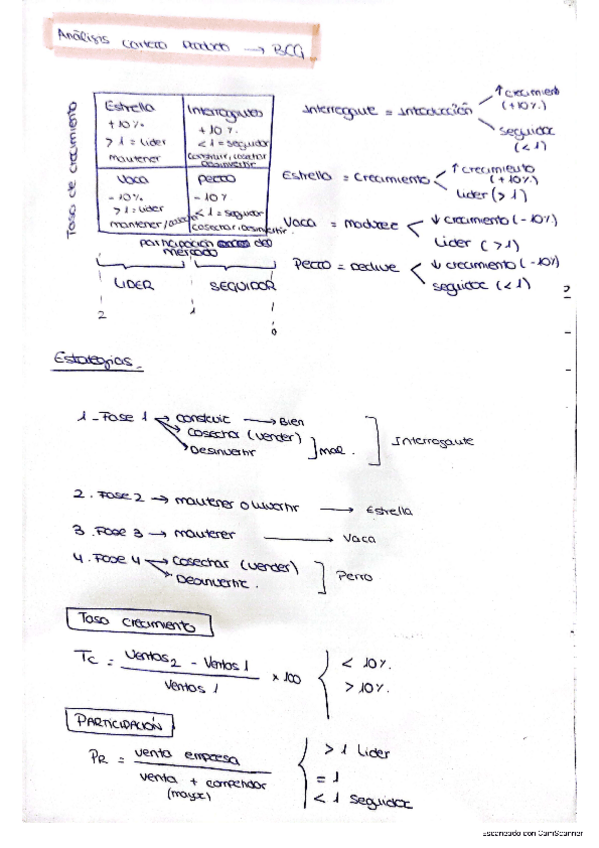 Análisis cartera Producto → BCG
Tasa de crecimiento
Estrella
+10%
> 1 = Lider
mantener
Interrogantes
+10%
< 1 = seguidor
construir, cosechar
Desinvertir
Vaca
-10%
> 1 = Lider
mantener/
Perro
-10%
< 1 = seguidor
cosechar, Desinvertir.
participación del
mercado
LIDER
SEGUIDOR
2
1
0
Interrogante = Introducción
↑ crecimiento
(+10%)
seguidor
(<1)
Estrella = Crecimiento
↑ crecimiento
(+10%)
Lider (>1)
Vaca = madurez
↓ crecimiento (-10%)
Lider (>1)
Perro = Declive
↓ crecimiento (-10%)
seguidor (<1)
Estrategias.
1 - Fase 1 → construir → Bien
Cosechar (vender)
Desinvertir
] mal.
Interrogante
2. Fase 2 → mantener o Invertir → Estrella
3. Fase 3 → mantener → Vaca
4. Fase 4 → Cosechar (vender)
Desinvertir.
Perro
Tasa crecimiento
Tc = Ventas2 - Ventas1 / Ventas 1 × 100
< 10%.
> 10%.
PARTICIPACIÓN
PR = venta empresa / venta + competidor
(mayor)
> 1 Lider
= 1
< 1 Seguidor
Escaneado con CamScanner